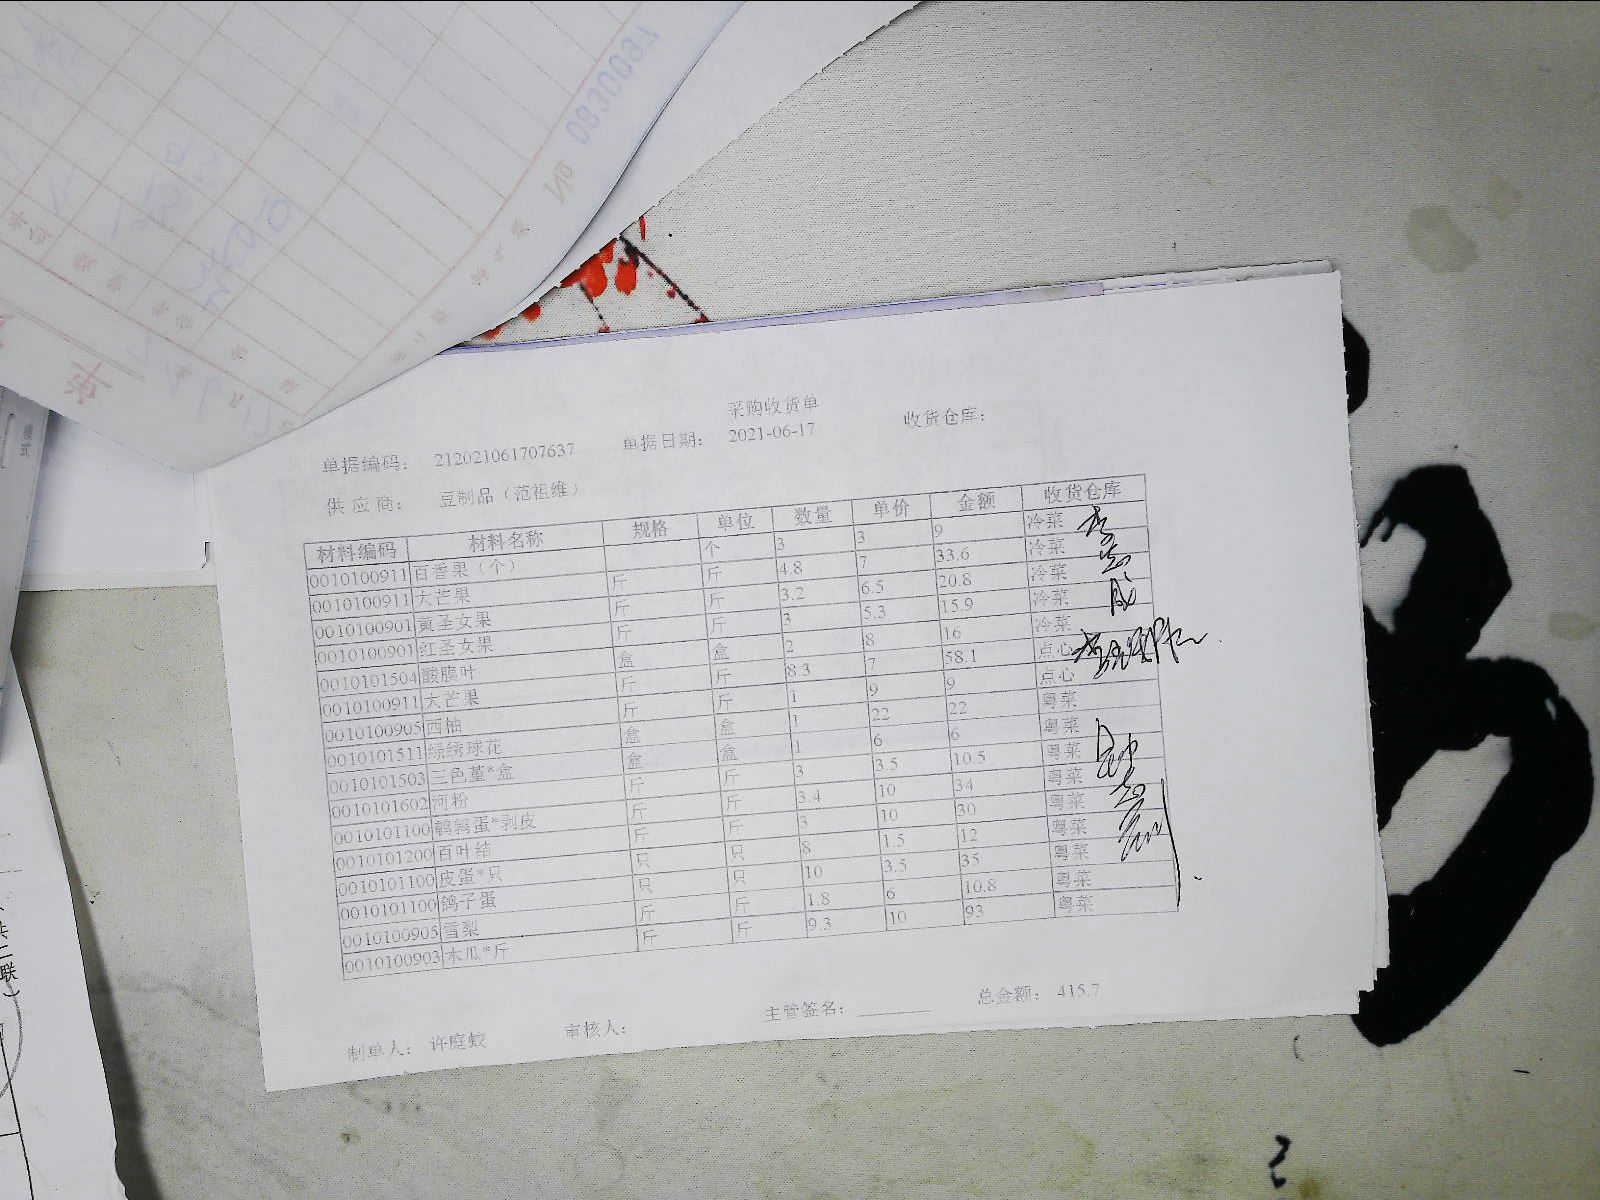 № 0330097
采购收货单
单据编码： 212021061707637 单据日期： 2021-06-17 收货仓库：
供应商： 豆制品（范祖维）
材料编码 材料名称 规格 单位 数量 单价 金额 收货仓库
0010100911 百香果（个） 个 3 3 9 冷菜
0010100911 大芒果 斤 斤 4.8 7 33.6 冷菜
0010100901 黄圣女果 斤 斤 3.2 6.5 20.8 冷菜
0010100901 红圣女果 斤 斤 3 5.3 15.9 冷菜
0010101504 酸膜叶 盒 盒 2 8 16 冷菜
0010100911 大芒果 斤 斤 8.3 7 58.1 点心
0010100905 西柚 斤 斤 1 9 9 点心
0010101511 绿绣球花 盒 盒 1 22 22 粤菜
0010101503 三色堇*盒 盒 盒 1 6 6 粤菜
0010101602 河粉 斤 斤 3 3.5 10.5 粤菜
0010101100 鹌鹑蛋*剥皮 斤 斤 3.4 10 34 粤菜
0010101200 百叶结 斤 斤 3 10 30 粤菜
0010101100 皮蛋*只 只 只 8 1.5 12 粤菜
0010101100 鸽子蛋 只 只 10 3.5 35 粤菜
0010100905 雪梨 斤 斤 1.8 6 10.8 粤菜
0010100903 木瓜*斤 斤 斤 9.3 10 93 粤菜
制单人： 许庭蛟 审核人： 主管签名： 总金额： 415.7